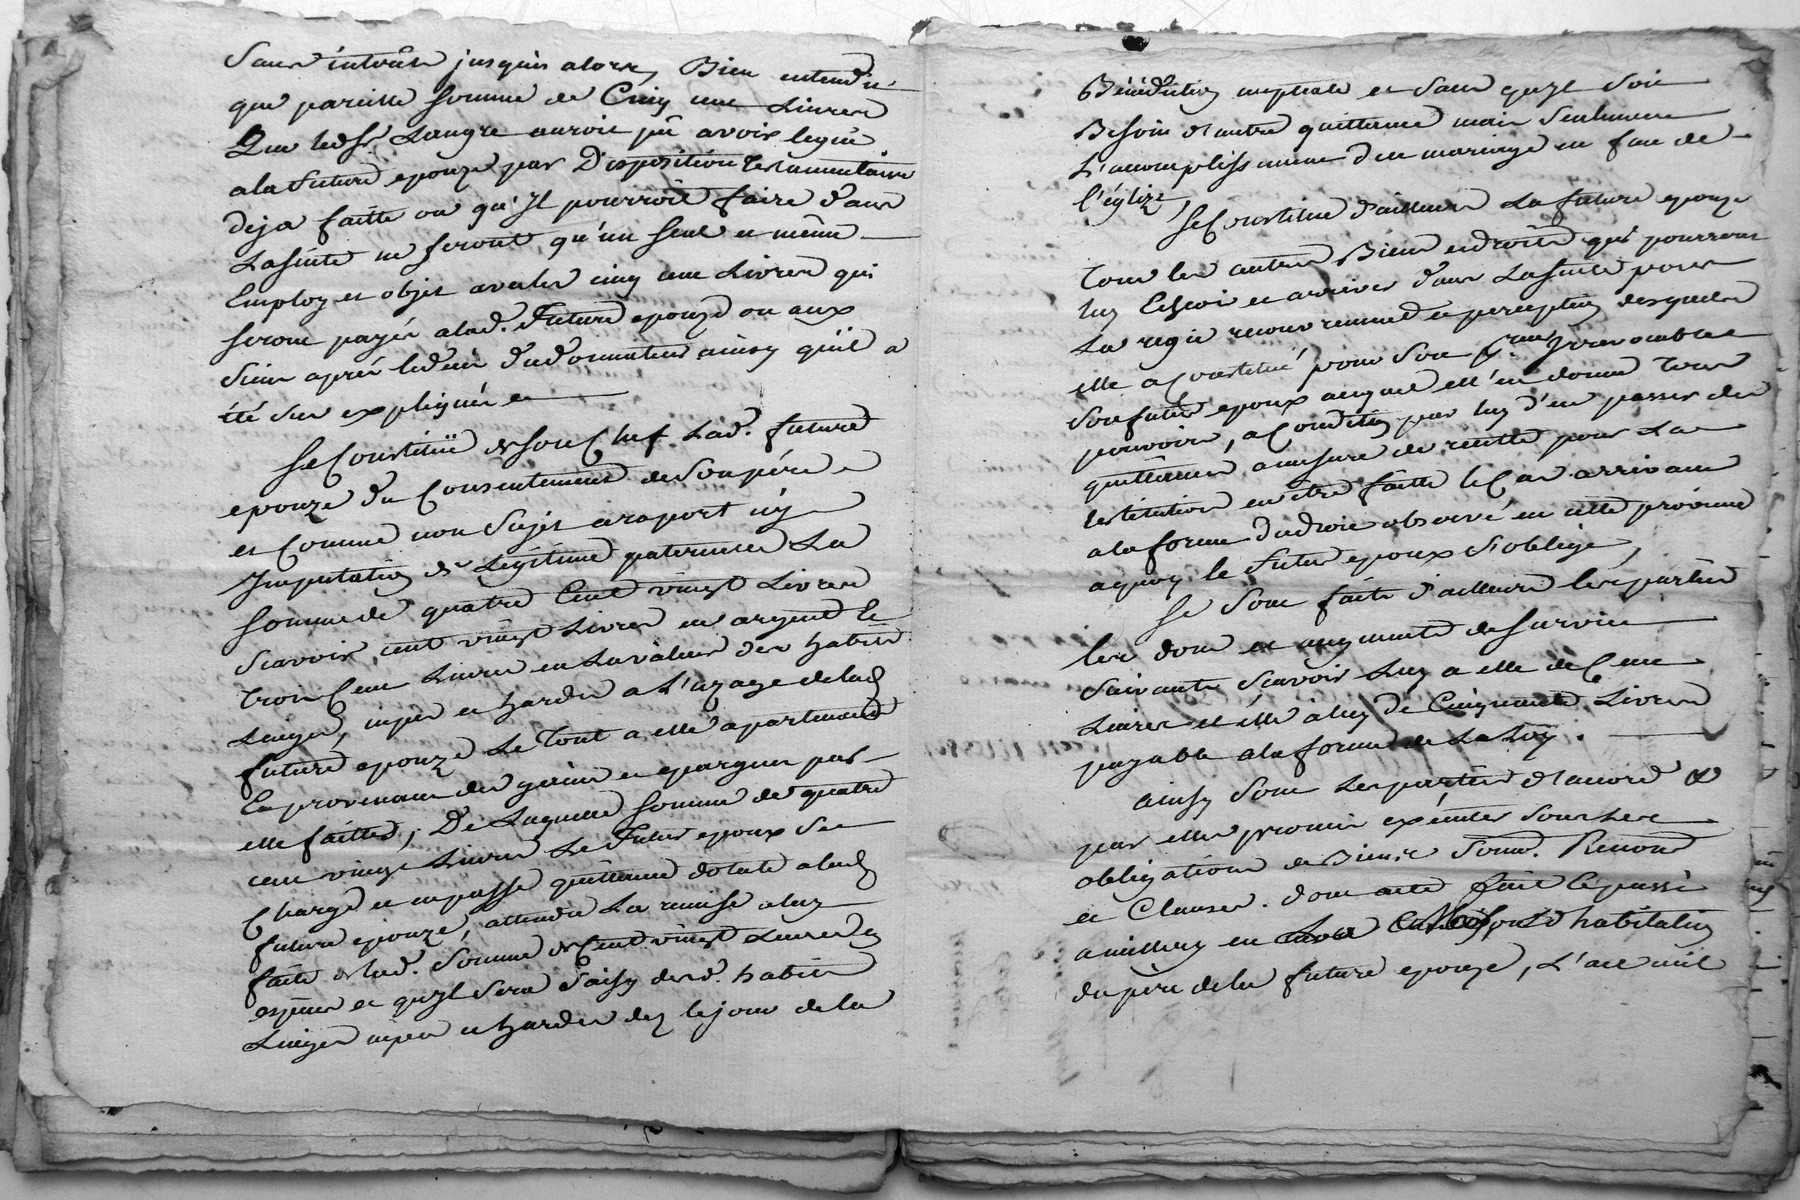 Sans intérêts jusques alors, Bien entendu
que pareille somme de Cinq cent Livres
Que led Sr Langre auroit pû avoir legué
a la future epouze par Disposition testamentaire
deja faitte ou qu'Il pourroit faire dans
La suitte ne feront qu'un seul et même
Employ et objet avec les cinq cent Livres qui
seront payés a lad. Future epouze ou aux
Siens aprés le decés dud donnateur ainsy quil a
été sus expliqué et
Se Constitüe de son Chef Lad. future
epouze du Consentement de Son pére
et Comme non Sujet a raport ny
Imputation de Légitime paternelle La
somme de quatre Cent vingt Livres
Scavoir, cent vingt Livres en argent Et
trois Cent Livres en La valeur des habits
Linges, nipes et hardes a L'uzage de lad
future epouze Le Tout a elle apartenant
Et provenant des gains et epargnes par
elle faittes, De Laquelle somme de quatre
cent vingt Livres Le Futur epoux Se
Charge et en passe quittance dotale a lad
future epouze, attendu La remise a luy
faite de lad. Somme de Cent vingt Livres en
espéces et qu'Il sera Saisy desd. habits
Linges nipes et hardes dez le jour de la
Bénédiction nuptiale et sans qu'Il soit
Besoin d'autre quittance mais Seulement
L'acomplissement du mariage en face de
l'églize,
Se Constitue d'ailleurs La future epouze
Tous les autres Biens et droits qui pourront
luy Echoir et arriver dans La suitte pour
La regie recouvrement et perception desquels
elle a Constitué pour Son Procureur Irrevocable
Son futur epoux auquel ell'en donne Tous
pouvoirs, a Condition par luy d'en passer des
quittances a mesure de recette pour La
restitution en étre faitte le Cas arrivant
a la forme du droit observé en cette province
a quoy le futur epoux s'oblige,
Se sont faits d'ailleurs les parties
les dons et augments de survie
suivants Scavoir Luy a elle de Cent
Livres et elle a luy de Cinquante Livres
payable a la forme de La Loy.
Ainsy Sont Les parties d'acord &
par elles promis exécuter sous les
obligations de Biens Soumd. Renond
et Clauses. dont acte fait et passé
a millery en La maison d'habitation
du père de la future epouze, L'an mil